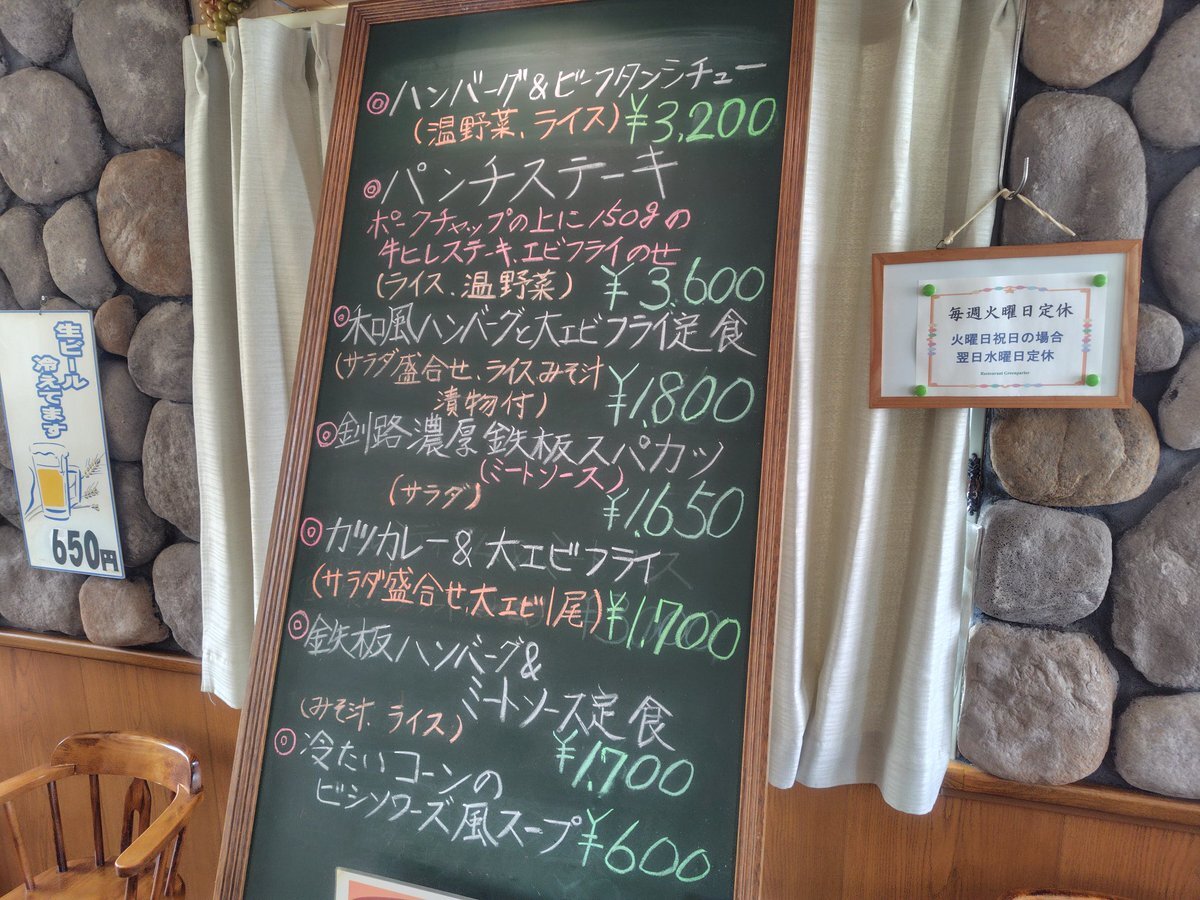 ◎ハンバーグ&ビーフタンシチュー
(温野菜、ライス)¥3,200
◎パンチステーキ
ポークチャップの上に150gの
牛ヒレステーキ、エビフライのせ
(ライス、温野菜) ¥3,600
◎和風ハンバーグと大エビフライ定食
(サラダ盛合せ、ライスみそ汁
漬物付) ¥1,800
◎釧路濃厚鉄板スパカツ
(ミートソース)
(サラダ) ¥1,650
◎カツカレー&大エビフライ
(サラダ盛合せ、大エビ1尾)¥1,700
◎鉄板ハンバーグ&
ミートソース定食
(みそ汁、ライス)
¥1,700
◎冷たいコーンの
ビシソワーズ風スープ ¥600
生ビール
冷えてます
650円
毎週火曜日定休
火曜日祝日の場合
翌日水曜日定休
Restaurant Greenparler